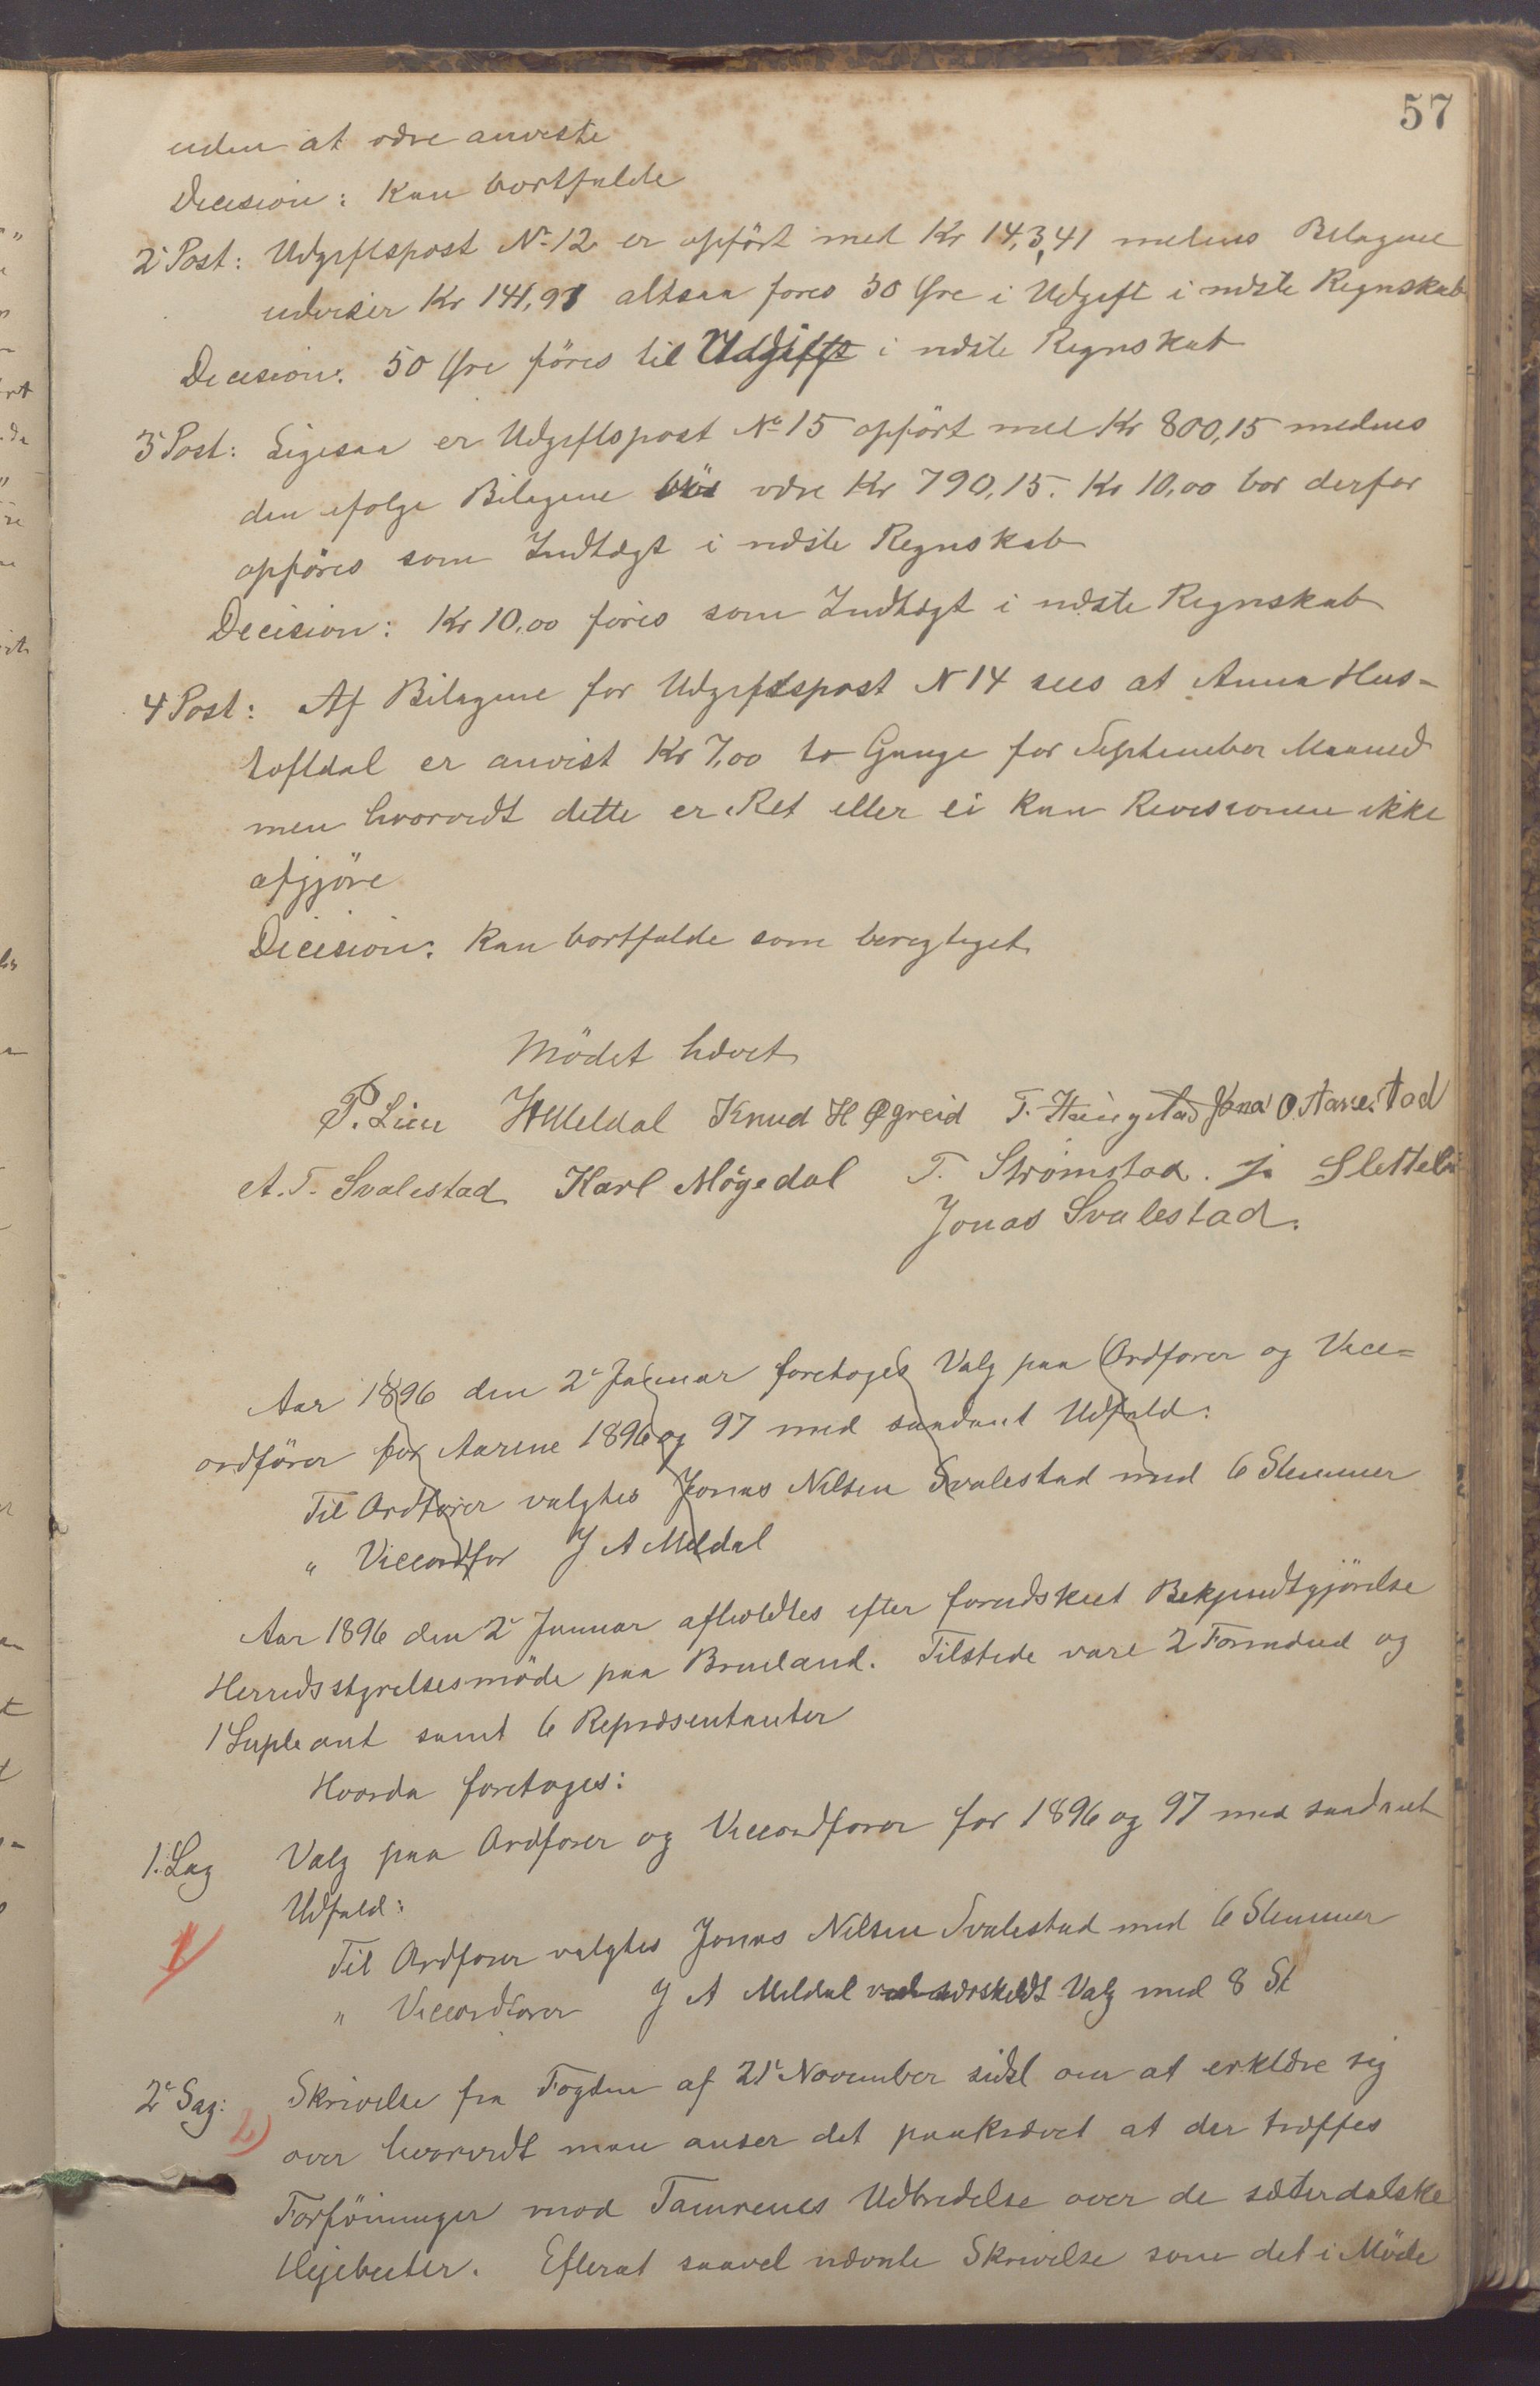 57
uden at være anviste
Decision: Kan bortfalde
2 Post: Udgiftspost No 12 er opført med Kr 14,3,41 medens Bilagene
udviser Kr 141,91 altsaa føres 50 Øre i Udgift i næste Regnskab
Decision: 50 Øre føres til Udgift i næste Regnskab
3 Post: Ligesaa er Udgiftspost No 15 opført med Kr 800,15 medens
den ifølge Bilagene bør være Kr 790,15. Kr 10,00 bør derfor
opføres som Indtægt i næste Regnskab
Decision: Kr 10,00 føres som Indtægt i næste Regnskab
4 Post: Af Bilagene for Udgiftspost N 14 sees at Anna Hus-
toftdal er anvist Kr 7,00 to Gange for September Maaned
men hvorvidt dette er Ret eller ei kan Revisionen ikke
afgjøre
Decision: Kan bortfalde som berigtiget
Mødet hævet
P. Lien Meldal Knud H Øgreid T. Jona O Aarrestad
A. T. Svalestad Karl Møgedal T. Strømstad. Slettebø
Jonas Svalestad.
Aar 1896 den 2 Januar foretoges Valg paa Ordfører og Vice=
ordfører for Aarene 1896 og 97 med saadant Udfald:
Til Ordfører valgtes Jonas Nilsen Svalestad med 6 Stemmer
" Viceordfør J A Meldal
Aar 1896 den 2 Januar afholdtes efter forudskeet Bekjendtgjørelse
Herredsstyrelsesmøde paa Brueland. Tilstede vare 2 Formænd og
1 Supleant samt 6 Repræsentanter
Hvorda foretoges:
1. Sag Valg paa Ordfører og Viceordfører for 1896 og 97 med saadant
Udfald:
1)
Til Ordfører valgtes Jonas Nilsen Svalestad med 6 Stemmer
" Viceordfører J A Meldal ved særskildt Valg med 8 St
2 Sag: Skrivelse fra Fogden af 21 November sidst om at erklære sig
2)
over hvorvidt man anser det paakrævet at der træffes
Forføininger mod Tamrenes Udbredelse over de sæterdalske
Hejebeiter. Efterat saavel nævnte Skrivelse som det i Møde